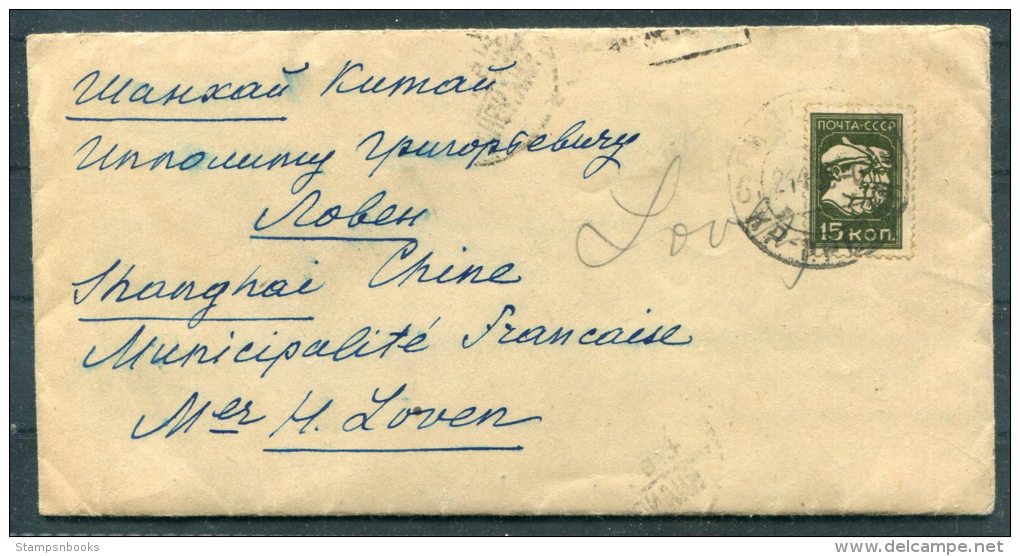 Шанхай Китай
Ипполиту Григорьевичу
Ловен
Shanghai Chine
Municipalité Francaise
Mer H. Loven
Lov
ПОЧТА-СССР
15 КОП.
Stampsnbooks